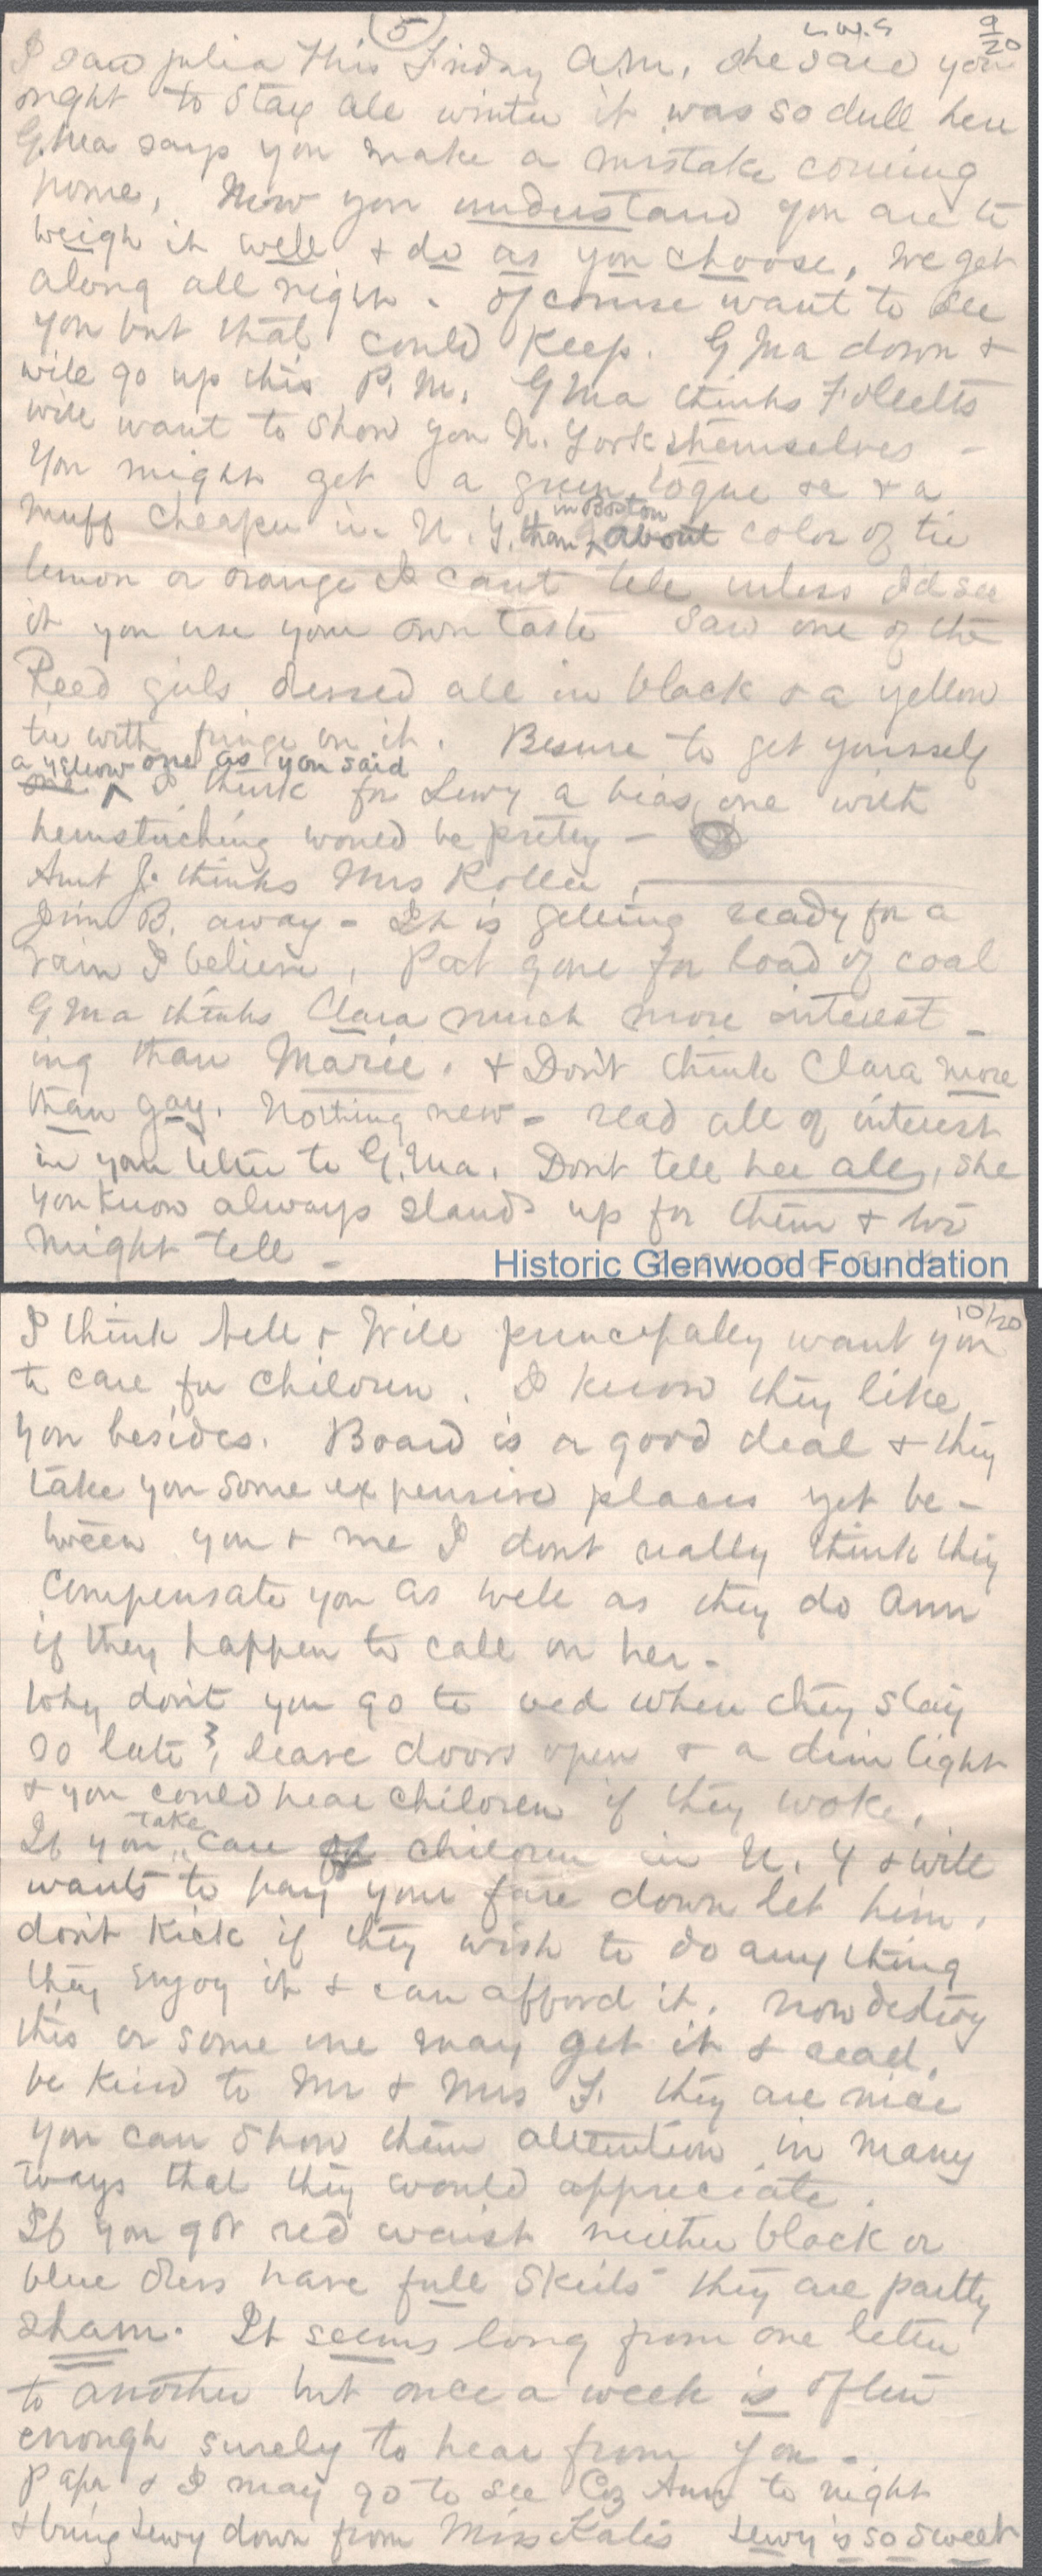 5
L.W.S
9/20
I saw Julia this Friday A.M. she said you
ought to stay all winter it was so dull here
G.Ma says you make a mistake coming
home, Now you understand you are to
weigh it well & do as you choose, we get
along all right - of course want to see
you but that could keep. G Ma down &
will go up this P.M. G Ma thinks Folletts
will want to show you N. York themselves -
You might get a green toque &c & a
muff cheaper in N.Y. than in Boston about color of tie
lemon or orange I cant tell unless I'd see
it you use your own taste Saw one of the
Reed girls dressed all in black & a yellow
tie with fringe on it. Besure to get yourself
a yellow one as you said
one I think for Lewy a bias one with
hemstitching would be pretty -
Aunt J. thinks Mrs Roller
Jim B. away - It is getting ready for a
rain I believe, Pat gone for load of coal
G Ma thinks Clara much more interest -
ing than Marie. & Don't think Clara more
than gay. Nothing new - read all of interest
in your letter to G.Ma. Dont tell her all, she
you know always stands up for them &
might tell -
Historic Glenwood Foundation
10/20
I think Nell & Will principally want you
to care for children. I know they like
you besides. Board is a good deal & they
take you some expensive places yet be -
tween you & me I dont really think they
compensate you as well as they do Ann
if they happen to call on her -
Why don't you go to bed when they stay
so late?, leave doors open & a dim light
& you could hear children if they woke.
If you take care of children in N.Y & Will
wants to pay your fare down let him,
don't kick if they wish to do any thing
they enjoy it & can afford it. Now destroy
this or some one may get it & read.
be kind to Mr & Mrs F. they are nice
you can show them attention in many
ways that they would appreciate.
If you got red waist neither black or
blue dress have full skirts they are partly
sham. It seems long from one letter
to another but once a week is often
enough surely to hear from you -
Papa & I may go to see Coz Ann to night
& bring Lewy down from Miss Kates Lewy is so sweet